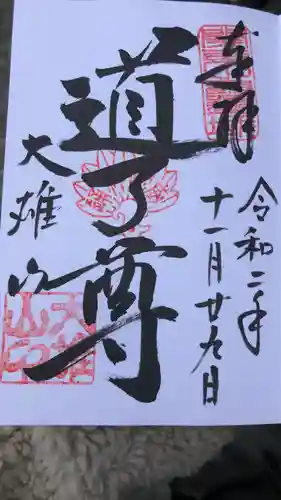 奉拝
令和二年
十一月廿九日
道了尊
大雄山